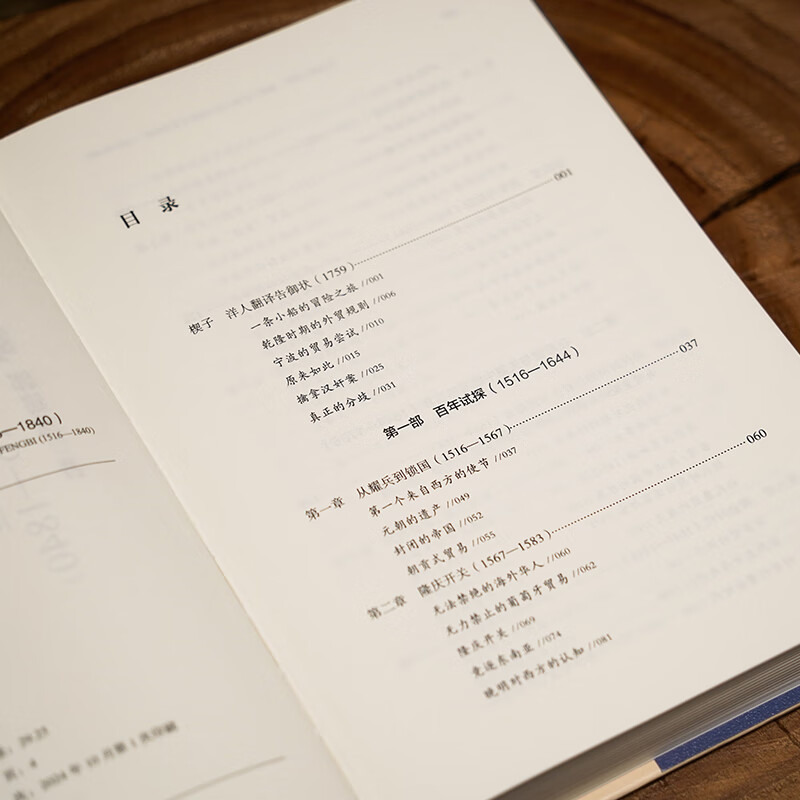 —1840)
FENGBI (1516—1840)
2024年10月第1次印刷
目 录
楔子 洋人翻译告御状（1759）……001
一条小船的冒险之旅 //001
乾隆时期的外贸规则 //006
宁波的贸易尝试 //010
原来如此 //015
擒拿汉奸案 //025
真正的分歧 //031
第一部 百年试探（1516—1644）
第一章 从耀兵到锁国（1516—1567）……037
第一个来自西方的使节 //037
元朝的遗产 //049
封闭的帝国 //052
朝贡式贸易 //055
第二章 隆庆开关（1567—1583）……060
无法禁绝的海外华人 //060
无力禁止的葡萄牙贸易 //062
隆庆开关 //069
竞逐东南亚 //074
晚明对西方的认知 //081